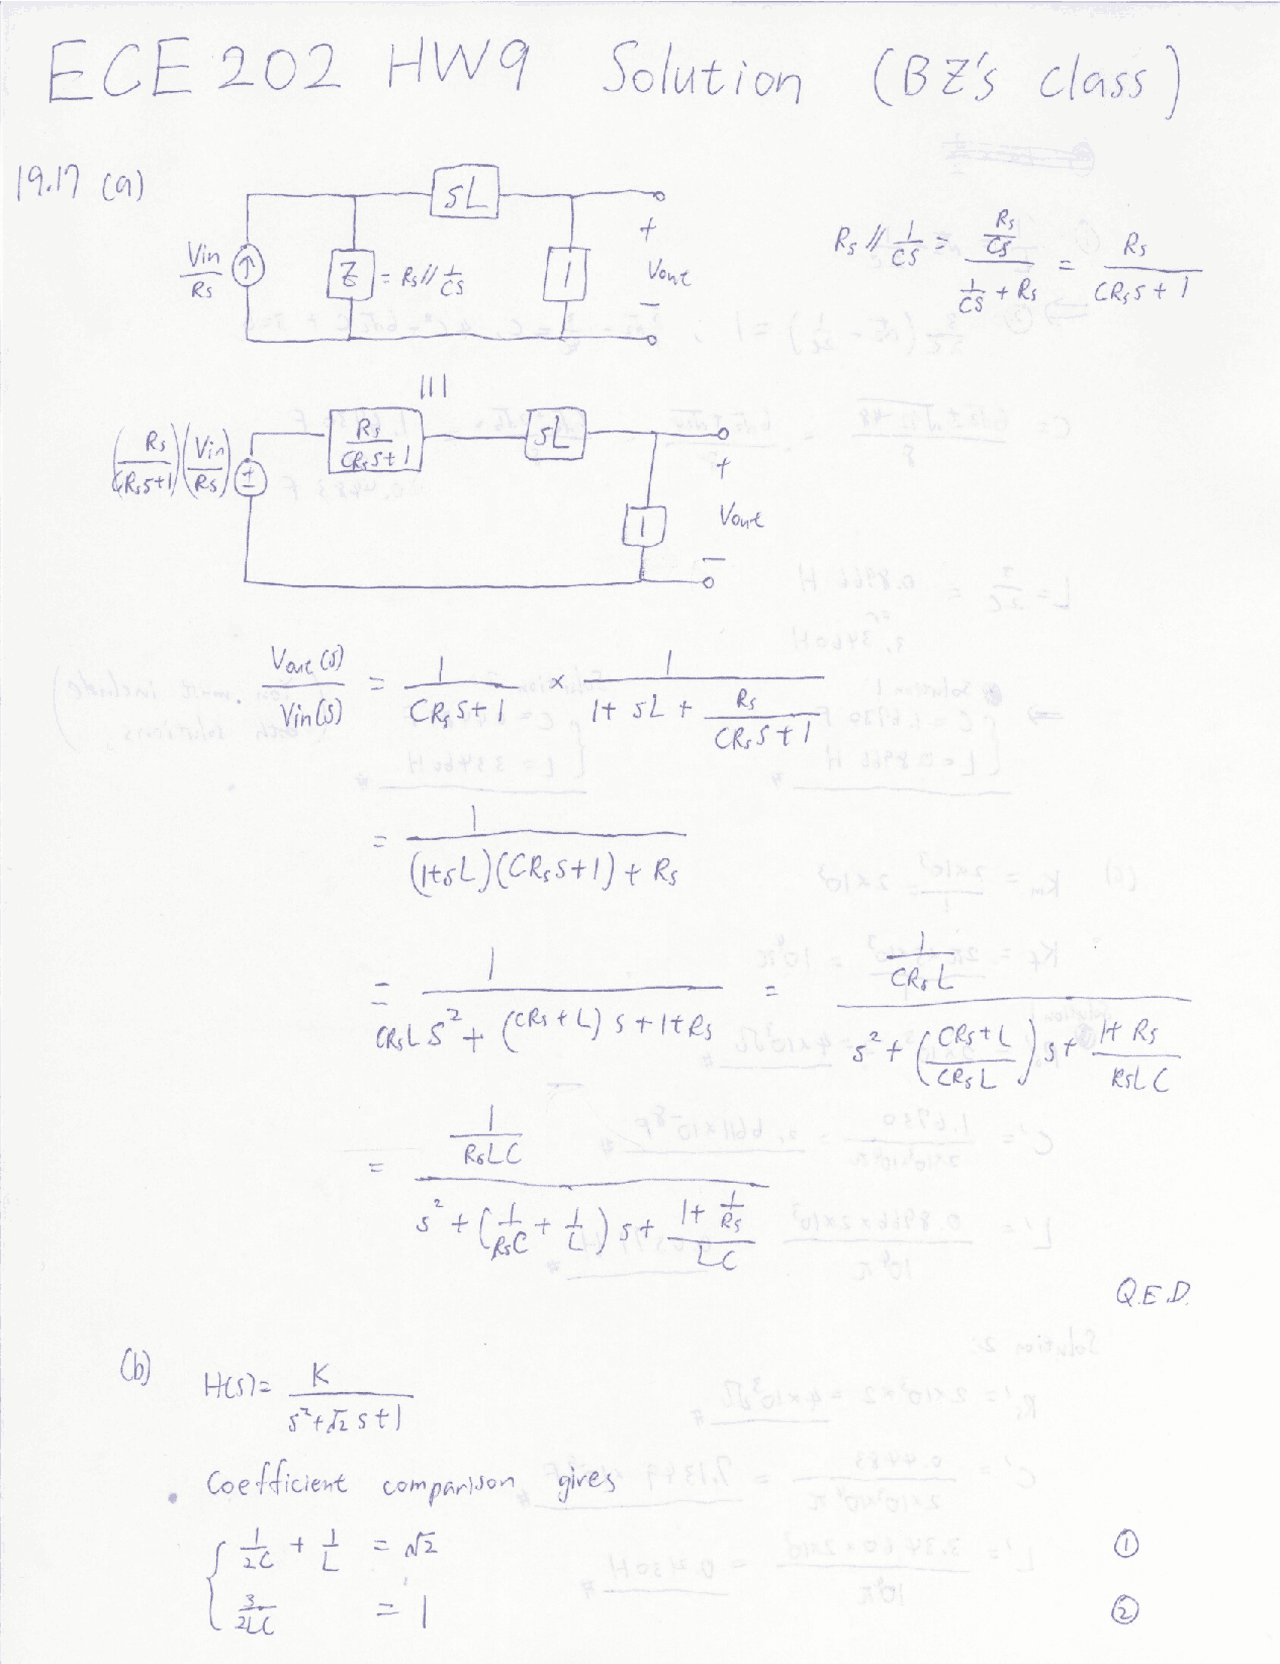 ECE 202 HW9 Solution (BZ's class)
19.17 (a)
sL
Vin/Rs
Z = Rs // 1/CS
1
+
Vout
-
Rs // 1/CS = (Rs/CS) / (1/CS + Rs) = Rs / (CRsS + 1)
|||
(Rs/(CRsS+1)) (Vin/Rs)
±
Rs/(CRsS+1)
sL
1
+
Vout
-
Vout(s)/Vin(s) = 1/(CRsS+1) × 1/(1 + sL + Rs/(CRsS+1))
= 1/((1+sL)(CRsS+1) + Rs)
= 1/(CRsL S² + (CRs+L) s + 1 + Rs) = (1/(CRsL)) / (s² + ((CRs+L)/(CRsL)) s + (1+Rs)/(RsLC))
= (1/(RsLC)) / (s² + (1/(RsC) + 1/L) s + (1 + 1/Rs)/(LC))
Q.E.D.
(b)
H(s) = K/(s²+√2 s+1)
Coefficient comparison gives
{ 1/2C + 1/L = √2 ①
3/2LC = 1 ②